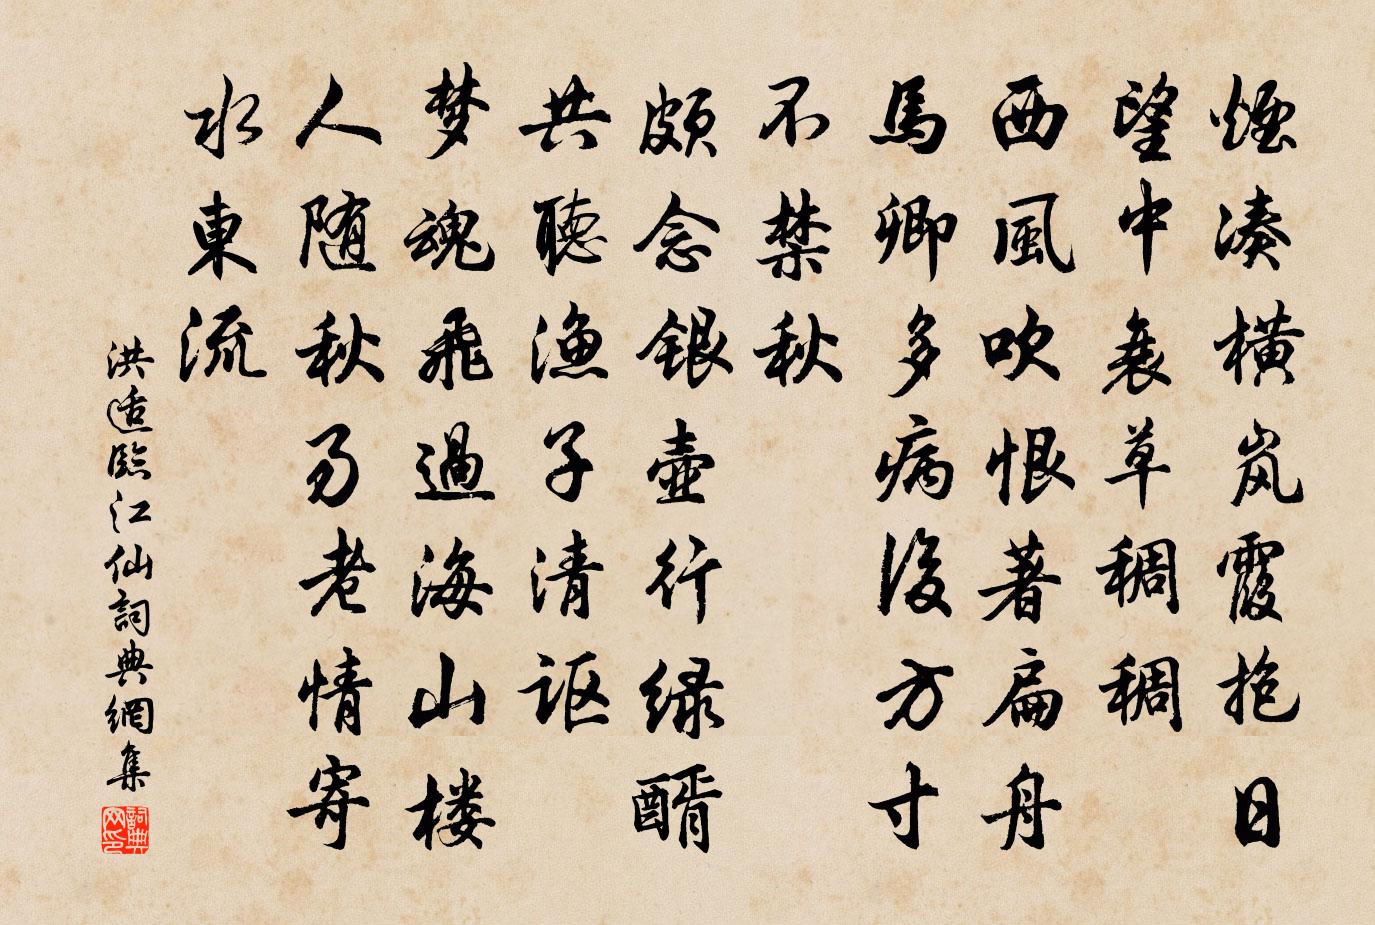 煙湊横岚霞抱日
望中衰草稠稠
西風吹恨著扁舟
馬卿多病後方寸
不禁秋
頗念銀壺行绿醑
共聽渔子清讴
梦魂飛過海山楼
人随秋易老情寄
水東流
洪适臨江仙詞典網集
詞典网印